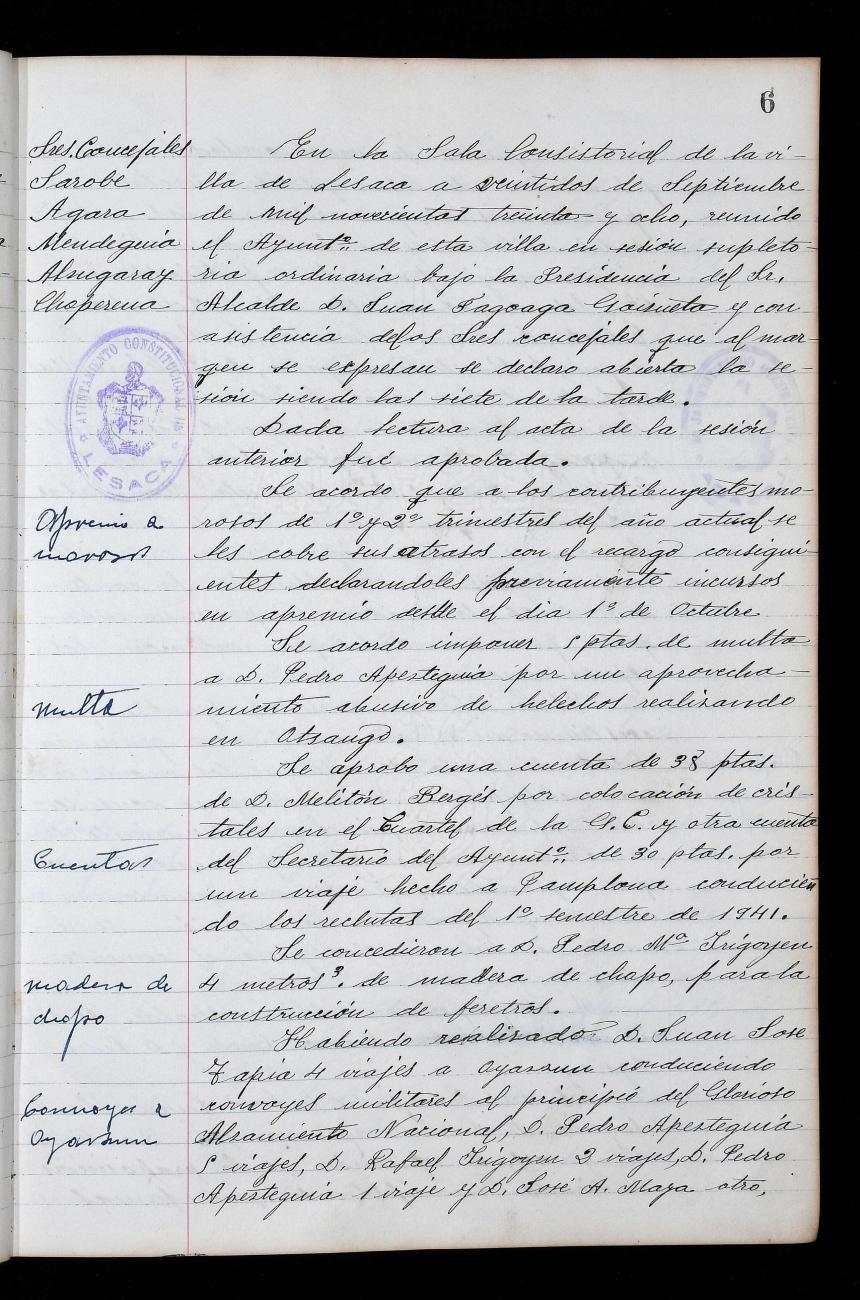 6
Sres. Concejales
Sarobe
Agara
Mendeguia
Alsugaray
Choperena
AYUNTAMIENTO CONSTITUCIONAL DE
LESACA
En la Sala Consistorial de la vi-
lla de Lesaca a veintidos de Septiembre
de mil novecientos treinta y ocho, reunido
el Ayuntº. de esta villa en sesión supleto-
ria ordinaria bajo la Presidencia del Sr.
Alcalde D. Juan Fagoaga Goizueta y con
asistencia de los Sres concejales que al mar-
gen se expresan se declaro abierta la se-
sión siendo las siete de la tarde.
Dada lectura al acta de la sesión
anterior fué aprobada.
Apremio a
morosos
Se acordo que a los contribuyentes mo-
rosos de 1º y 2º trimestres del año actual se
les cobre sus atrasos con el recargo consigui-
entes declarandoles previamente incursos
en apremio desde el dia 1º de Octubre
multa
Se acordo imponer 5 ptas. de multa
a D. Pedro Apesteguia por un aprovecha-
miento abusivo de helechos realizando
en Otsango.
Cuentas
Se aprobo una cuenta de 38 ptas.
de D. Melitón Bergés por colocación de cris-
tales en el Cuartel de la G.C. y otra cuenta
del Secretario del Ayuntº. de 30 ptas. por
un viaje hecho a Pamplona conducien
do los reclutas del 1º semestre de 1941.
madera de
chopo
Se concedieron a D. Pedro Mª Irigoyen
4 metros³. de madera de chapo, para la
construcción de feretros.
Convoyes a
Oyarzun
Habiendo realizado D. Juan Jose
Tapia 4 viajes a Oyarzun conduciendo
convoyes militares al principió del Glorioso
Alzamiento Nacional, D. Pedro Apesteguia
5 viajes, D. Rafael Irigoyen 2 viajes, D. Pedro
Apesteguia 1 viaje y D. José A. Maya otro,